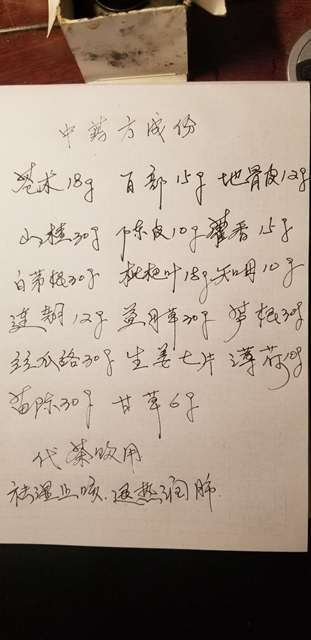 中药方成份
苍术18g 百部15g 地骨皮12g
山楂30g 陈皮10g 藿香15g
白茅根30g 枇杷叶18g 知母10g
连翘12g 益母草30g 芦根30g
丝瓜络30g 生姜七片 薄荷10g
茵陈30g 甘草6g
代茶饮用
祛湿止咳.退热润肺.